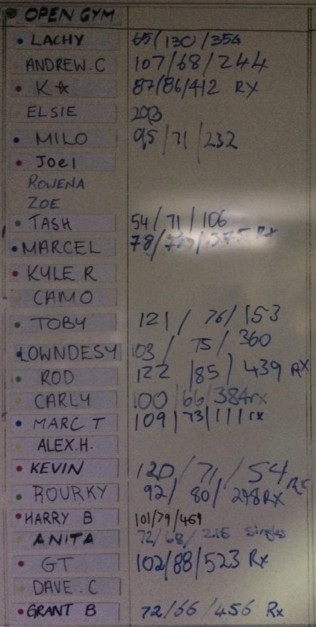 OPEN GYM
LACHY 65/130/356
ANDREW.C 107/68/244
K☆ 87/86/412 RX
ELSIE
MILO 95/71/232
Joel
ROWENA
ZOE
TASH 54/71/106
MARCEL 78/
KYLE R
CAMO
TOBY 121/76/153
LOWNDESY 103/75/360
ROD 122/85/439 RX
CARLY 100/66/384rx
MARC T 109/73/111 rx
ALEX.H.
KEVIN 120/71/54
ROURKY 92/80/298RX
HARRY B 101/79/469
ANITA 72/68/ single
GT 102/88/523 Rx
DAVE.C
GRANT B 72/66/456 Rx